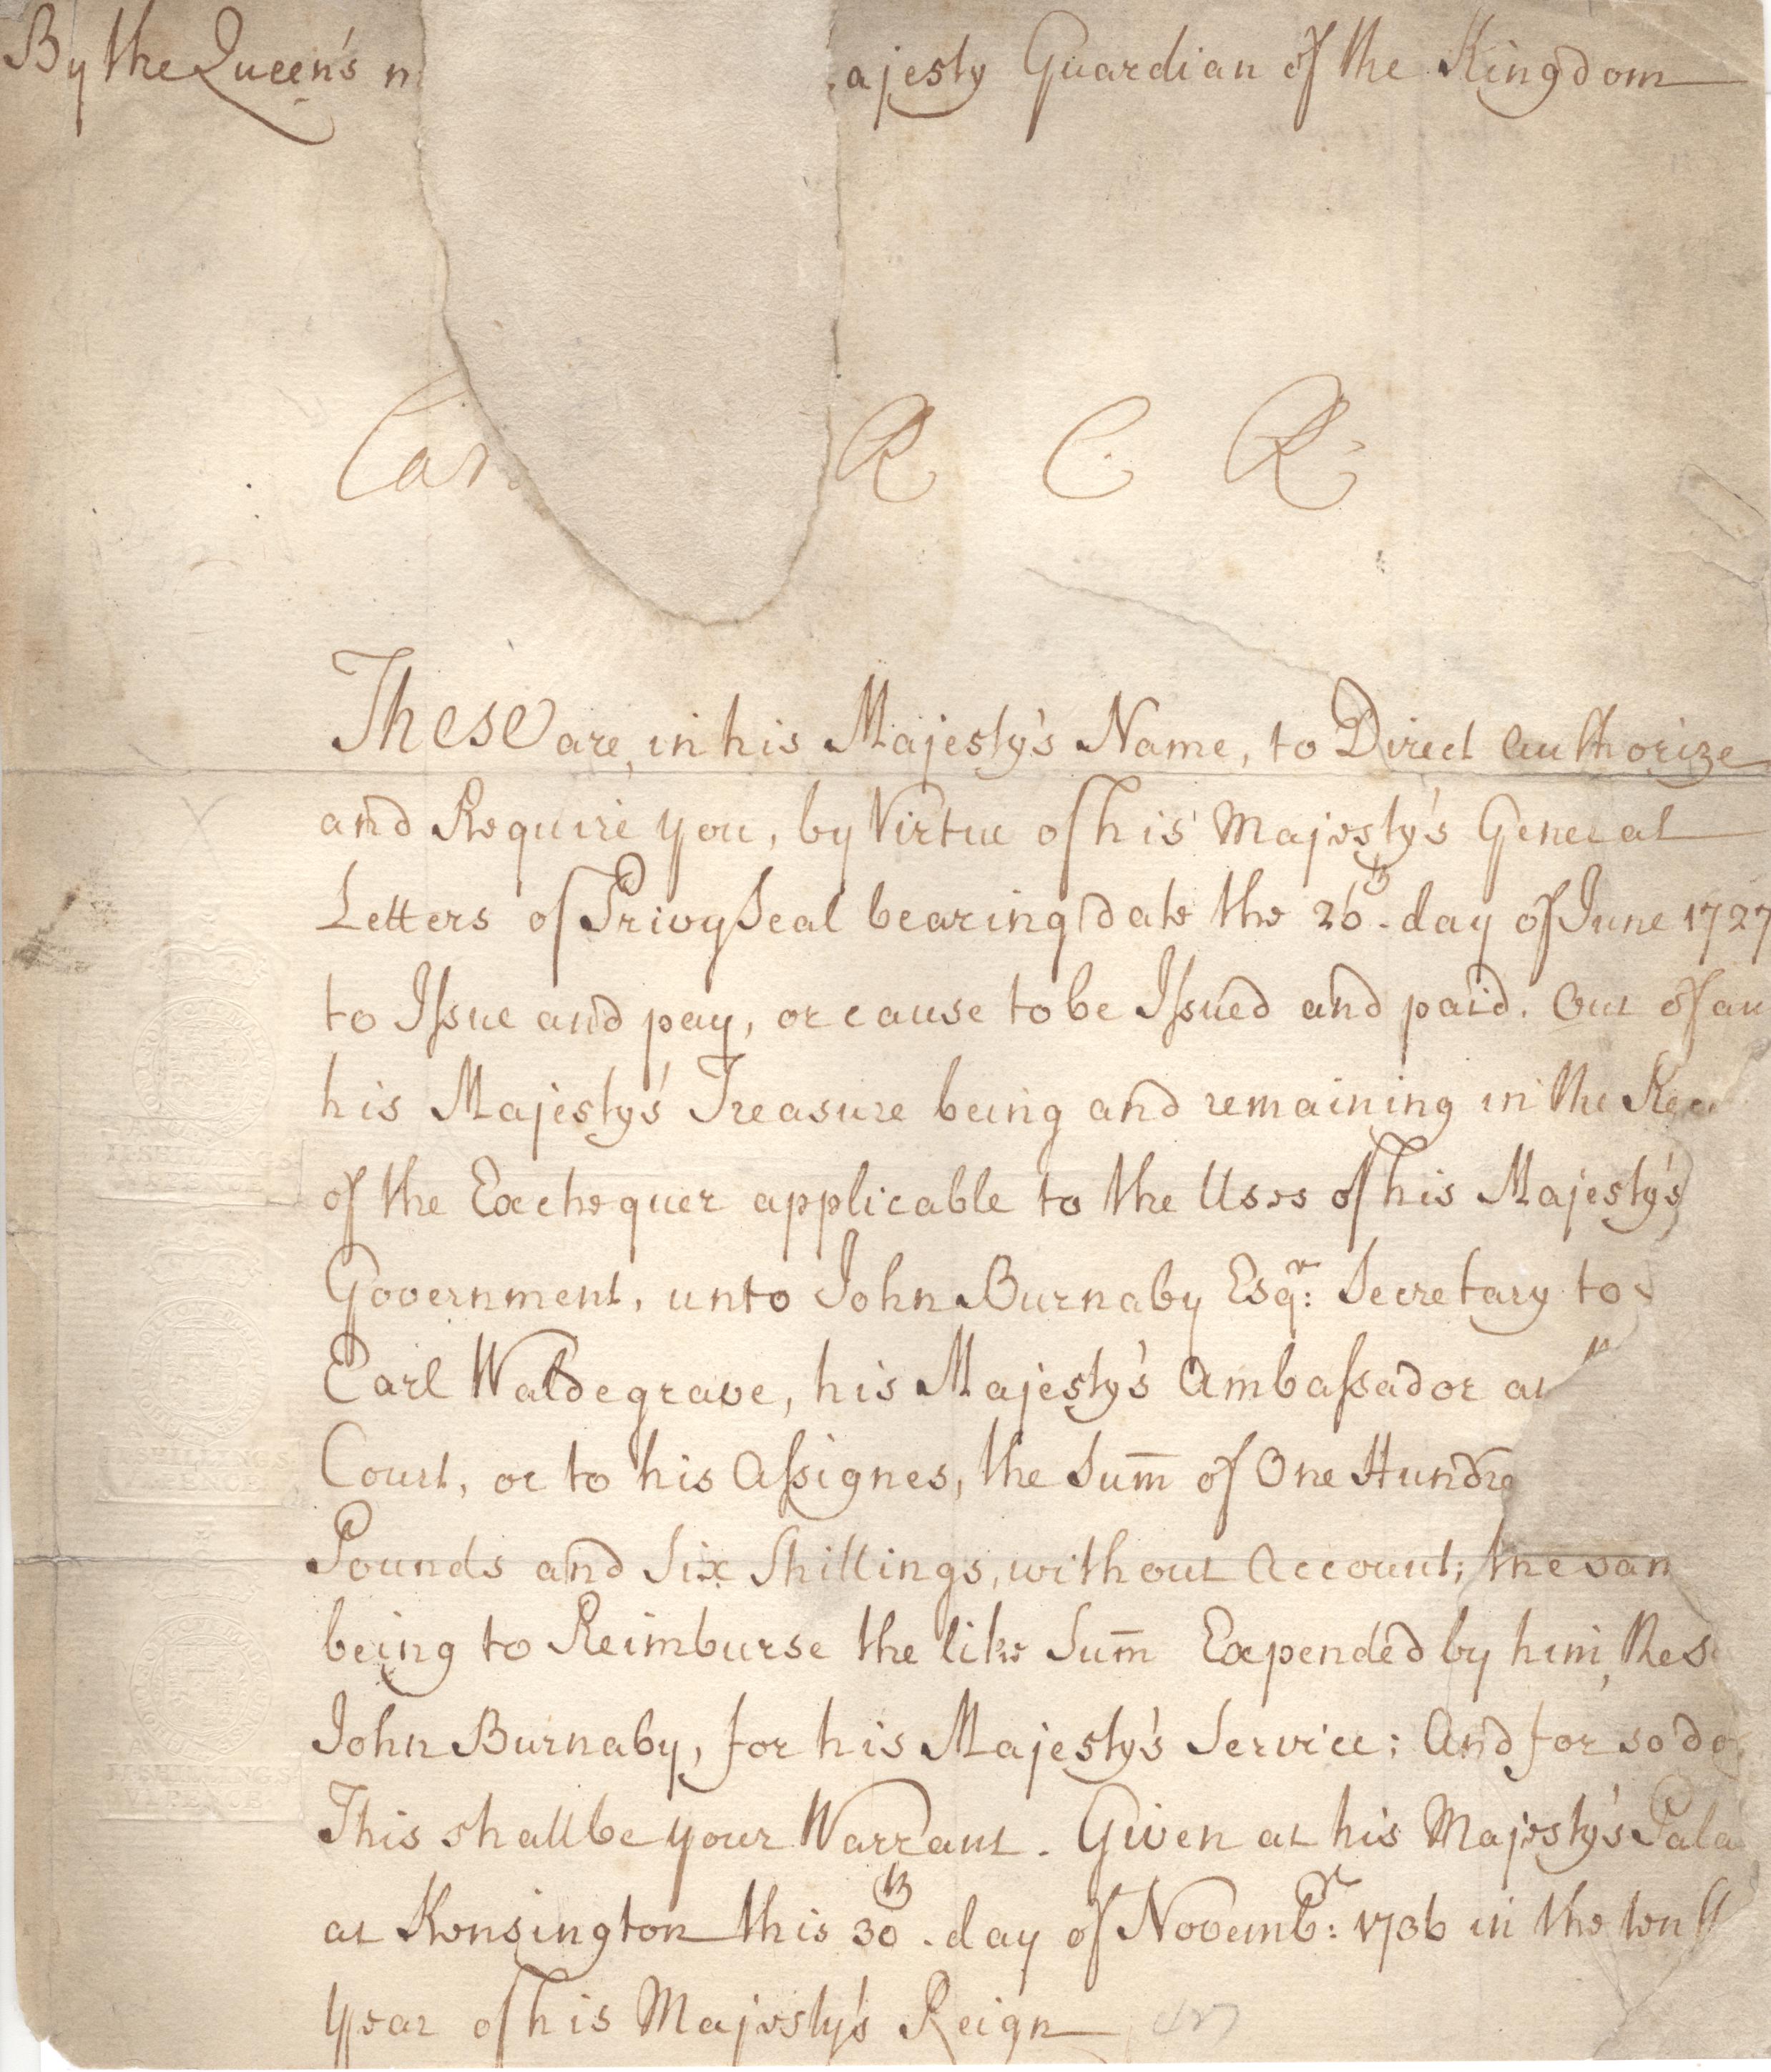 By the Queen's m ajesty Guardian of the Kingdom
Car R C R
These are, in his Majesty's Name, to Direct Authorize
and Require you, by Virtue of his Majesty's General
Letters of Privy Seal bearing date the 26th. day of June 1727
to Issue and pay, or cause to be Issued and paid. Out of any
his Majesty's Treasure being and remaining in the Rec
of the Exchequer applicable to the Uses of his Majesty's
Government, unto John Burnaby Esqr: Secretary to
Earl Waldegrave, his Majesty's Ambassador at
Court, or to his Assignes, the Sum̄ of One Hundre
Pounds and Six Shillings, without Account; the sam
being to Reimburse the like Sum̄ Expended by him,
John Burnaby, for his Majesty's Service; And for so do
This shall be your Warrant. Given at his Majesty's Pala
at Kensington this 30th. day of Novembr: 1736 in the tenth
year of his Majesty's Reign
II SHILLINGS
VI PENCE
II SHILLINGS
PENCE
II SHILLINGS
VI PENCE